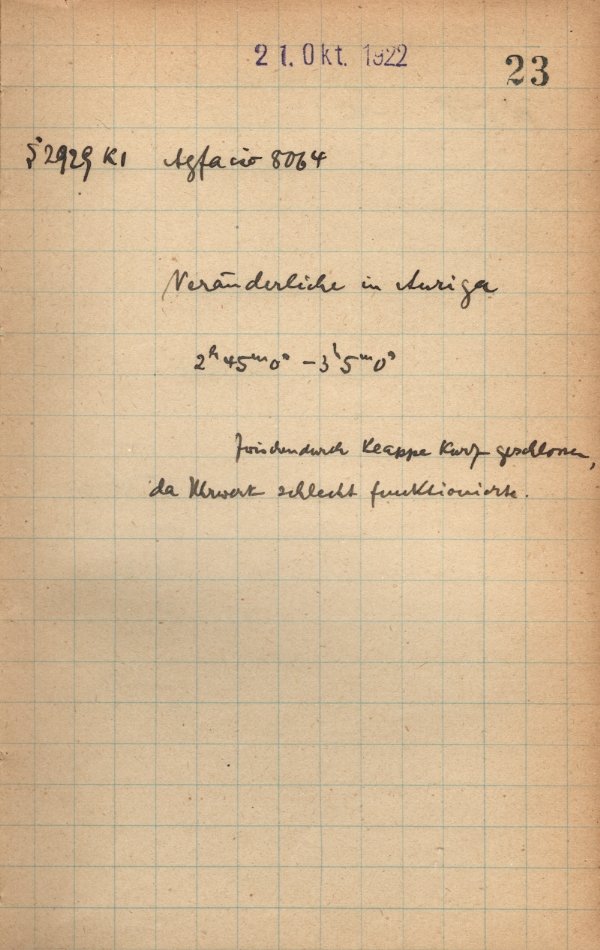 21. Okt. 1922
23
S 2929 K1 Agfa iso 8064
Veränderliche in Auriga
2ʰ45ᵐ0ˢ – 3ʰ5ᵐ0ˢ
Zwischendurch Klappe kurz geschlossen,
da Uhrwerk schlecht funktionierte.